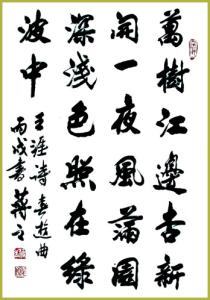 萬樹江邊杏新
開一夜風滿園
深淺色照在綠
波中
王涯詩春遊曲
丙戌書蔣立